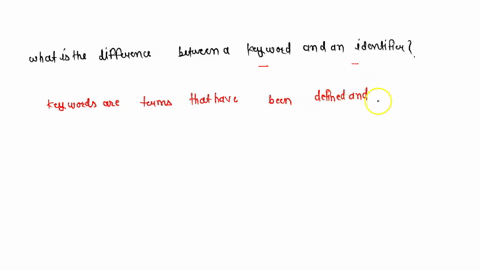 what is the difference between a keyword and an identifier?
keywords are terms that have been defined and